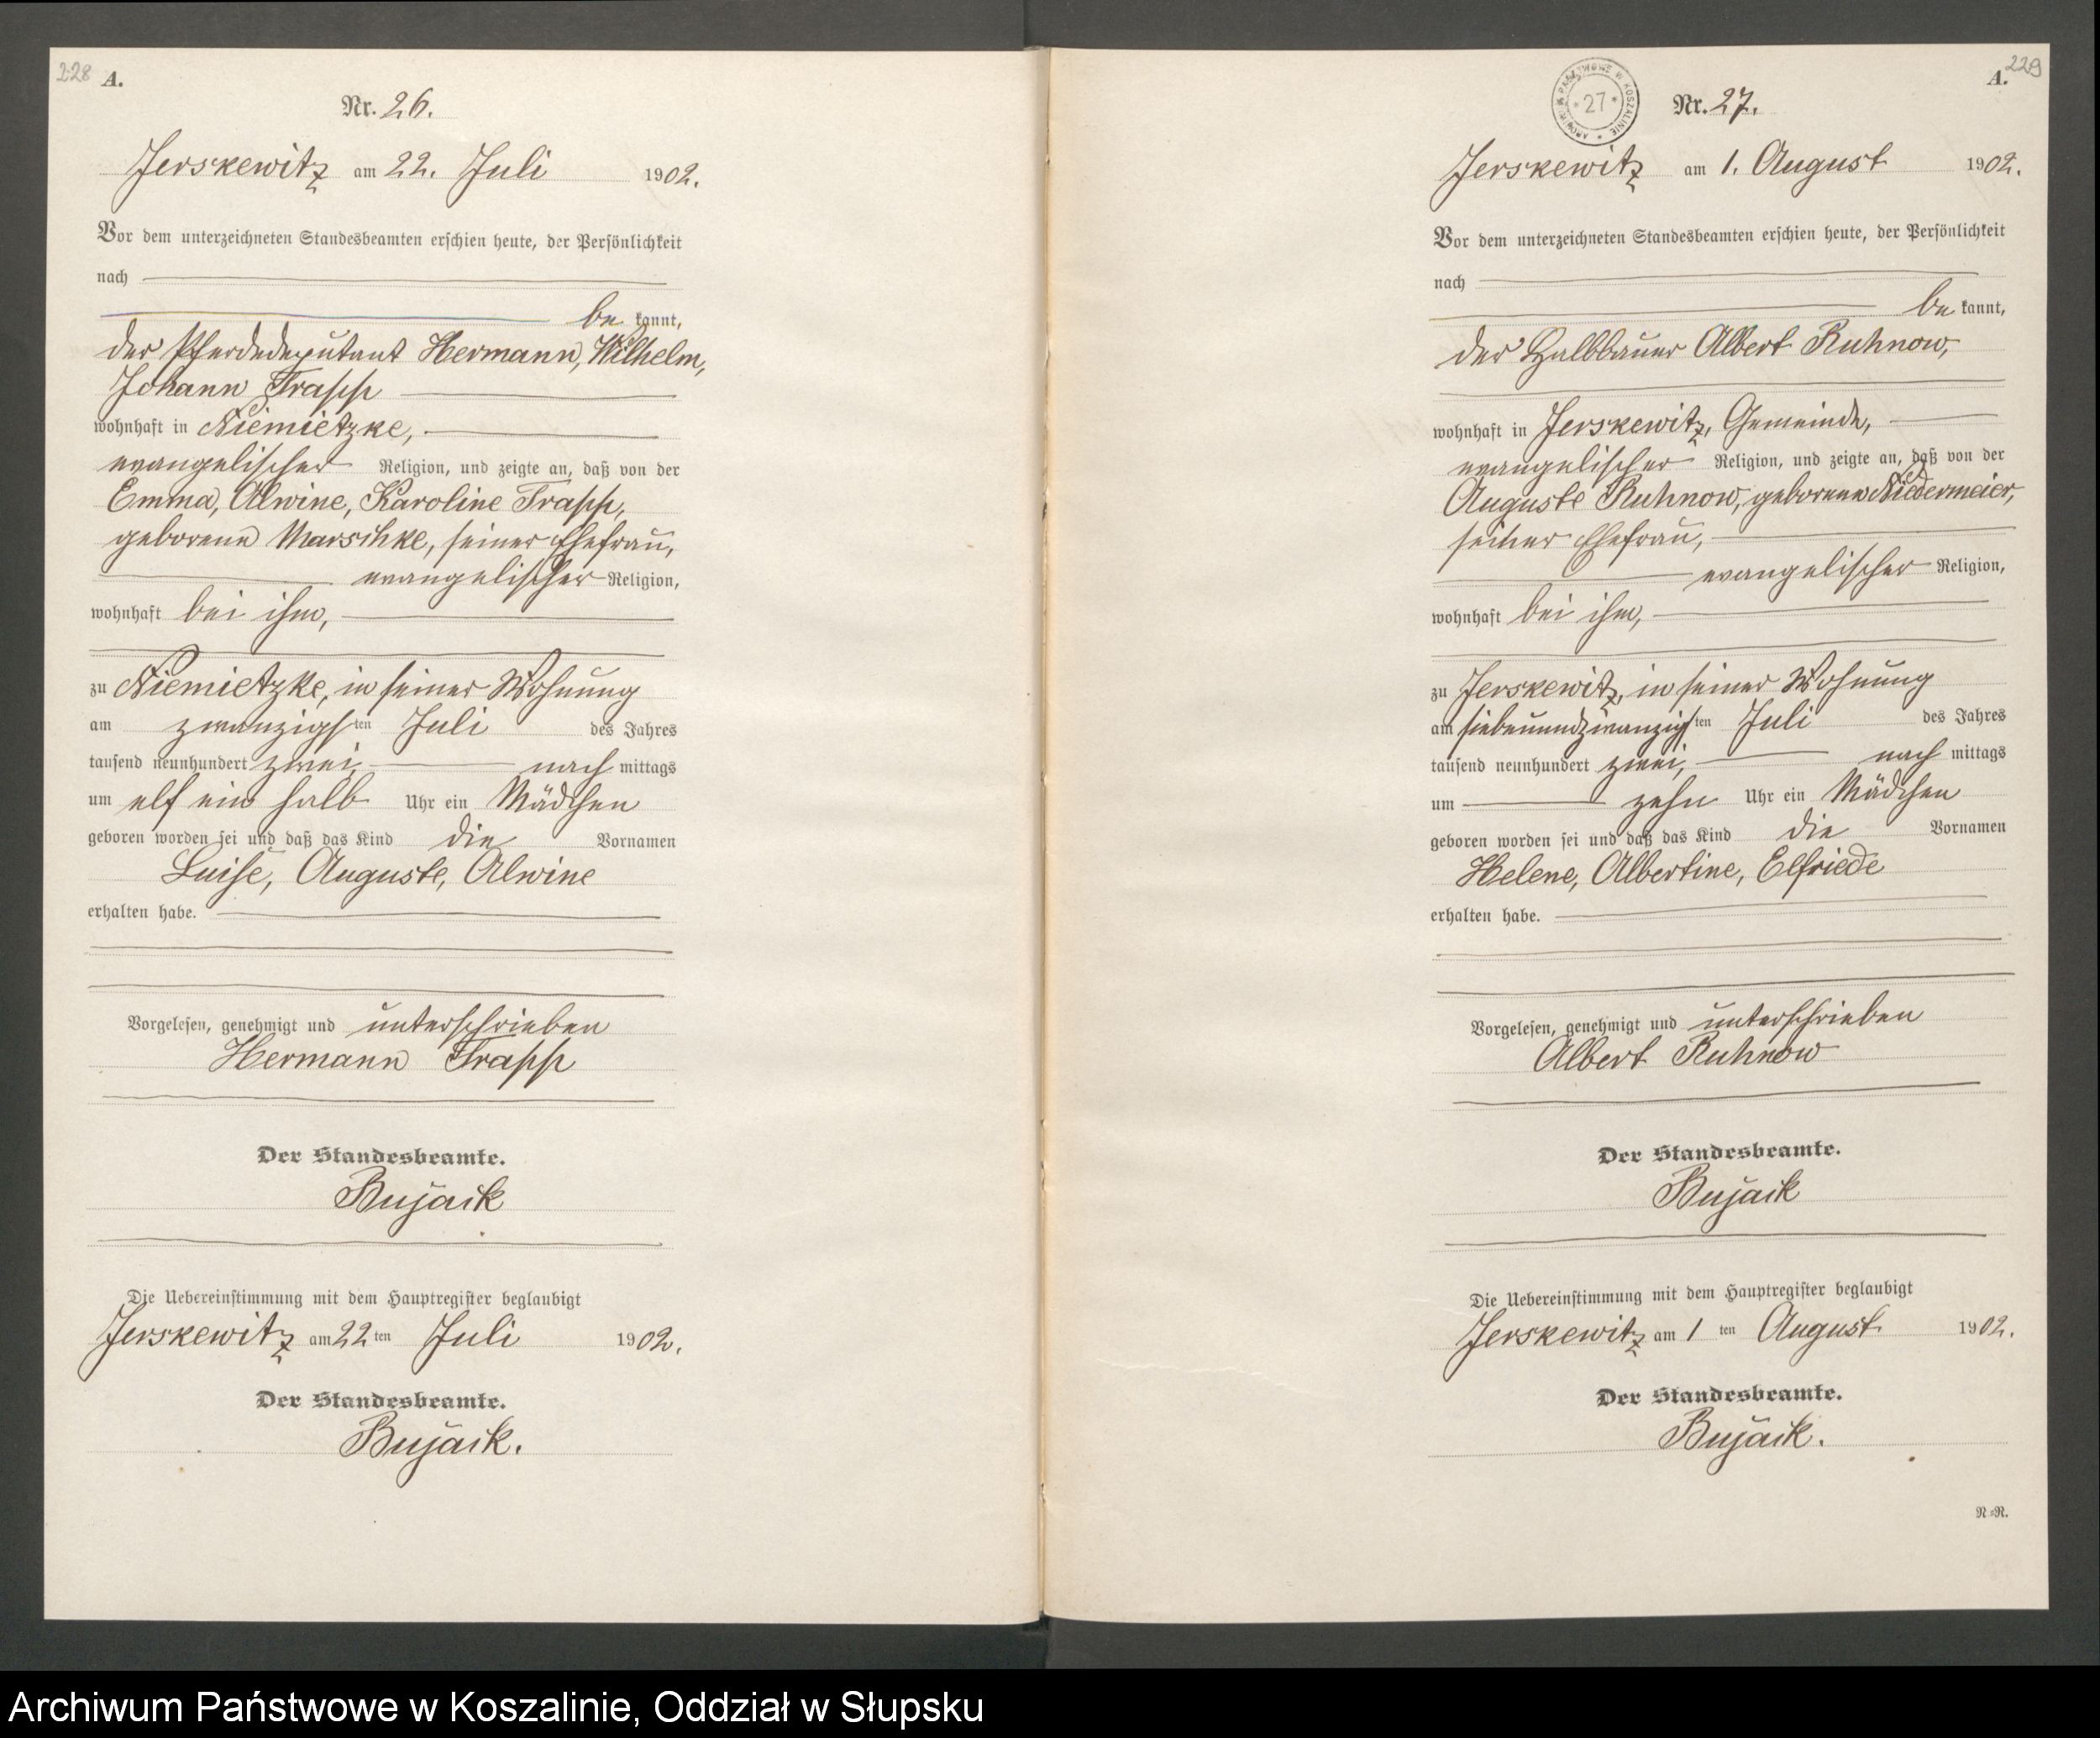 228 A.
Nr. 26.
Jerskewitz am 22. Juli 1902.
Vor dem unterzeichneten Standesbeamten erschien heute, der Persönlichkeit
nach
be kannt,
der Pferdedeputant Hermann, Wilhelm,
Johann Trapp
wohnhaft in Niemietzke,
evangelischer Religion, und zeigte an, daß von der
Emma, Alwine, Karoline Trapp,
geborene Marschke, seiner Ehefrau,
evangelischer Religion,
wohnhaft bei ihm,
zu Niemietzke, in seiner Wohnung
am zwanzigsten Juli des Jahres
tausend neunhundert zwei, nach mittags
um elf ein halb Uhr ein Mädchen
geboren worden sei und daß das Kind die Vornamen
Luise, Auguste, Alwine
erhalten habe.
Vorgelesen, genehmigt und unterschrieben
Hermann Trapp
Der Standesbeamte.
Bujack
Die Uebereinstimmung mit dem Hauptregister beglaubigt
Jerskewitz am 22 ten Juli 1902.
Der Standesbeamte.
Bujack.
229
A.
ARCHIWUM PAŃSTWOWE W KOSZALINIE * 27 *
Nr. 27.
Jerskewitz am 1. August 1902.
Vor dem unterzeichneten Standesbeamten erschien heute, der Persönlichkeit
nach
be kannt,
der Halbbauer Albert Ruhnow,
wohnhaft in Jerskewitz, Gemeinde,
evangelischer Religion, und zeigte an, daß von der
Auguste Ruhnow, geborene Niedermeier,
seiner Ehefrau,
evangelischer Religion,
wohnhaft bei ihm,
zu Jerskewitz, in seiner Wohnung
am siebenundzwanzigsten Juli des Jahres
tausend neunhundert zwei, nach mittags
um zehn Uhr ein Mädchen
geboren worden sei und daß das Kind die Vornamen
Helene, Albertine, Elfriede
erhalten habe.
Vorgelesen, genehmigt und unterschrieben
Albert Ruhnow
Der Standesbeamte.
Bujack
Die Uebereinstimmung mit dem Hauptregister beglaubigt
Jerskewitz am 1 ten August 1902.
Der Standesbeamte.
Bujack.
N=R.
Archiwum Państwowe w Koszalinie, Oddział w Słupsku